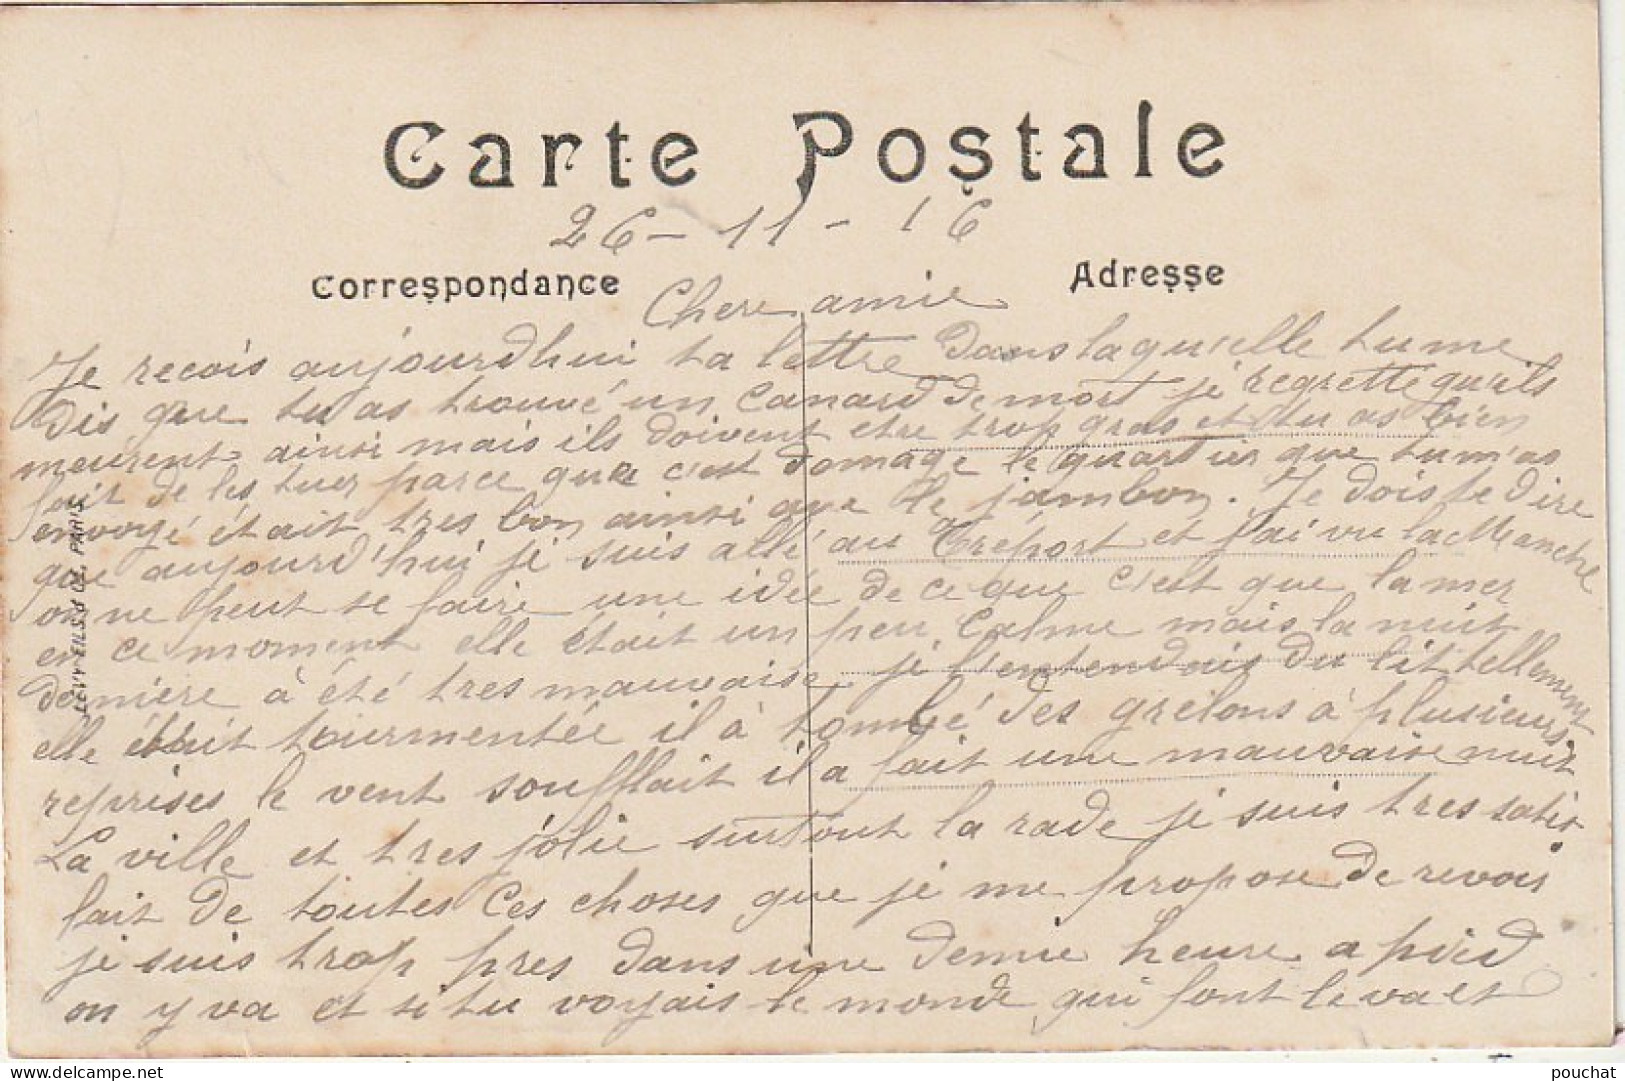 Carte Postale
26-11-16
Correspondance
Adresse
Chere amie
Je recois aujourdhui ta lettre Dans laquelle tu me
Dis que tu as trouvé un canard De mort je regrette quils
meurent ainsi mais ils doivent etre trop gras et tu as bien
fait de les tuer parce que c'est domage le quartier que tu m'as
envoyé était tres bon ainsi que le jambon. Je dois te dire
que aujourd'hui je suis allé au Tréport et j'ai vu la Manche
on ne peut se faire une idée de ce que c'est que la mer
en ce moment elle était un peu calme mais la nuit
derniere à été tres mauvaise je l'entendais du lit tellement
elle était tourmentée il à tombé des grelons à plusieurs
reprises le vent soufflait il a fait une mauvaise nuit
La ville et tres jolie surtout la rade je suis tres satis
fait de toutes ces choses que je me propose de revoir
je suis trop pres dans une demie heure a pied
on y va et si tu voyais le monde qui font le va et
LEVY FILS & CIE, PARIS
pouchat